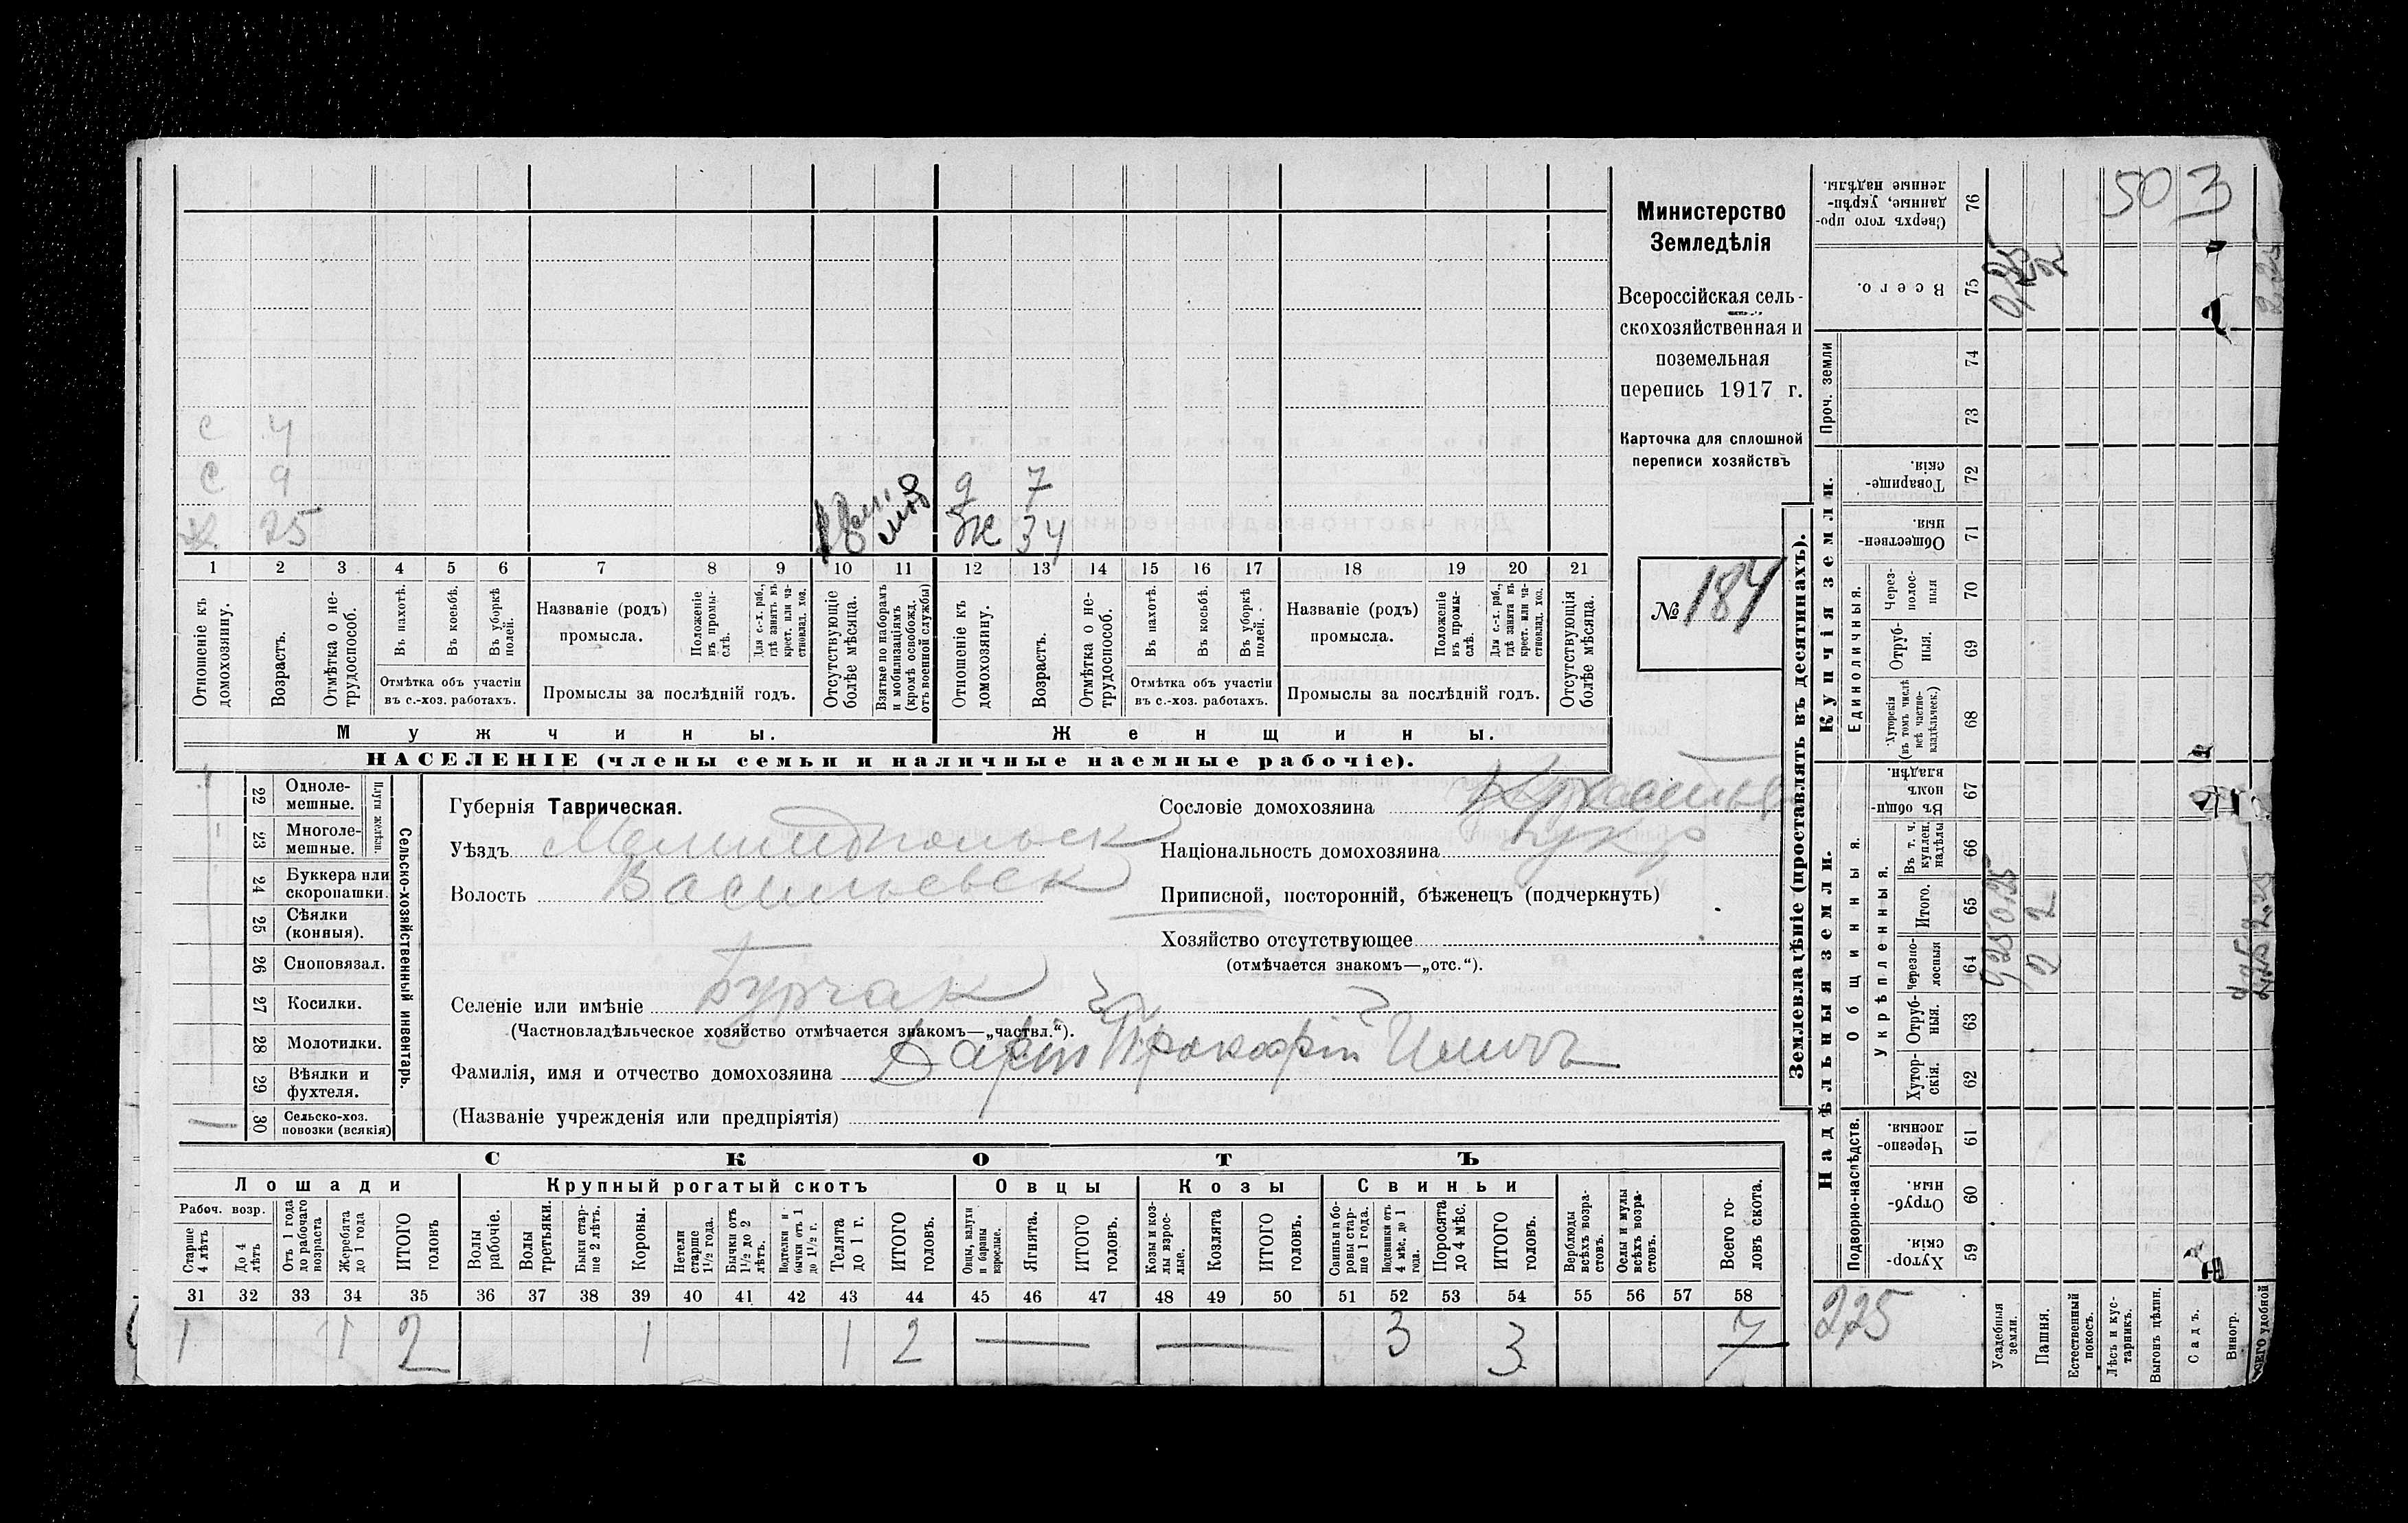 50 3
с 4
с 9
х 25
д 7
ж 34
1 2 3 4 5 6 7 8 9 10 11 12 13 14 15 16 17 18 19 20 21
Отношеніе къ домохозяину.
Возрастъ.
Отмѣтка о не-
трудоспособ.
Въ пахотѣ.
Въ косьбѣ.
Въ уборкѣ
полей.
Отмѣтка объ участіи
въ с.-хоз. работахъ.
Названіе (родъ)
промысла.
Положеніе
въ промы-
слѣ.
Для с.-х. раб.,
гдѣ занятъ въ
крест. или ча-
стновлад. хоз.
Промыслы за послѣдній годъ.
Отсутствующіе
болѣе мѣсяца.
Взятые по наборамъ
и мобилизаціямъ
(кромѣ освобожд.
отъ военной службы)
Отношеніе къ
домохозяину.
Возрастъ.
Отмѣтка о не-
трудоспособ.
Въ пахотѣ.
Въ косьбѣ.
Въ уборкѣ
полей.
Отмѣтка объ участіи
въ с.-хоз. работахъ.
Названіе (родъ)
промысла.
Положеніе
въ промы-
слѣ.
Для с.-х. раб.,
гдѣ занята въ
крест. или ча-
стновлад. хоз.
Промыслы за послѣдній годъ.
Отсутствующія
болѣе мѣсяца.
Мужчины.
Женщины.
НАСЕЛЕНІЕ (члены семьи и наличные наемные рабочіе).
Министерство
Земледѣлія
Всероссійская сель-
скохозяйственная и
поземельная
перепись 1917 г.
Карточка для сплошной
переписи хозяйствъ
№ 184
22 Одноле-
мешные.
23 Многоле-
мешные.
Плуги желѣзн.
24 Буккера или
скоропашки.
25 Сѣялки
(конныя).
26 Сноповязал.
27 Косилки.
28 Молотилки.
29 Вѣялки и
фухтеля.
30 Сельско-хоз.
повозки (всякія)
Сельско-хозяйственный инвентарь.
Губернія Таврическая.
Уѣздъ Мелитопольск
Волость Васильевск
Селеніе или имѣніе Бурчак
(Частновладѣльческое хозяйство отмѣчается знакомъ—„частвл.“).
Фамилія, имя и отчество домохозяина Прокофій
(Названіе учрежденія или предпріятія)
Сословіе домохозяина
Національность домохозяина
Приписной, посторонній, бѣженецъ (подчеркнуть)
Хозяйство отсутствующее
(отмѣчается знакомъ—„отс.“).
СКОТЪ
Лошади
Крупный рогатый скотъ
Овцы
Козы
Свиньи
Рабоч. возр.
Старше
4 лѣтъ
До 4
лѣтъ
Отъ 1 года
до рабочаго
возраста
Жеребята
до 1 года
ИТОГО
головъ
Волы
рабочіе.
Волы
третьяки.
Быки стар-
ше 2 лѣтъ.
Коровы.
Нетели
старше
1½ года.
Бычки отъ
1½ до 2
лѣтъ.
Подтелки и
бычки отъ 1
до 1½ г.
Телята
до 1 г.
ИТОГО
головъ.
Овцы, валухи
и бараны
взрослые.
Ягнята.
ИТОГО
головъ.
Козы и коз-
лы взрос-
лые.
Козлята
ИТОГО
головъ.
Свиньи и бо-
ровы стар-
ше 1 года.
Подсвинки отъ
4 мѣс. до 1
года.
Поросята
до 4 мѣс.
ИТОГО
головъ.
Верблюды
всѣхъ возра-
стовъ.
Ослы и мулы
всѣхъ возра-
стовъ.
Всего го-
ловъ скота.
31 32 33 34 35 36 37 38 39 40 41 42 43 44 45 46 47 48 49 50 51 52 53 54 55 56 57 58
1 1 2 1 1 2 — — 3 3 7
Землевладѣніе (проставлять въ десятинахъ).
Купчія земли.
Надѣльныя земли.
Сверхъ того про-
данные, укрѣп-
ленные надѣлы. 76
Всего. 75
Проч. земли
74
73
Товарище-
скія. 72
Обществен-
ныя. 71
Единоличныя.
Через-
полос-
ныя 70
Отруб-
ныя. 69
Хуторскія
(въ томъ числѣ
всѣ частно-
владѣльческ.) 68
Въ общин-
номъ
владѣн. 67
Общинныя.
Укрѣпленныя.
Въ т. ч.
куплен.
надѣлы 66
Итого. 65
Черезпо-
лосныя 64
Отруб-
ныя. 63
Хутор-
скія. 62
Подворно-наслѣдств.
Черезпо-
лосныя. 61
Отруб-
ныя. 60
Хутор-
скія. 59
0,25
2
2 2
2,25
Усадебныя
земли.
Пашня.
Естественный
покосъ.
Лѣсъ и кус-
тарникъ.
Выгонъ цѣлин.
Садъ.
Виногр.